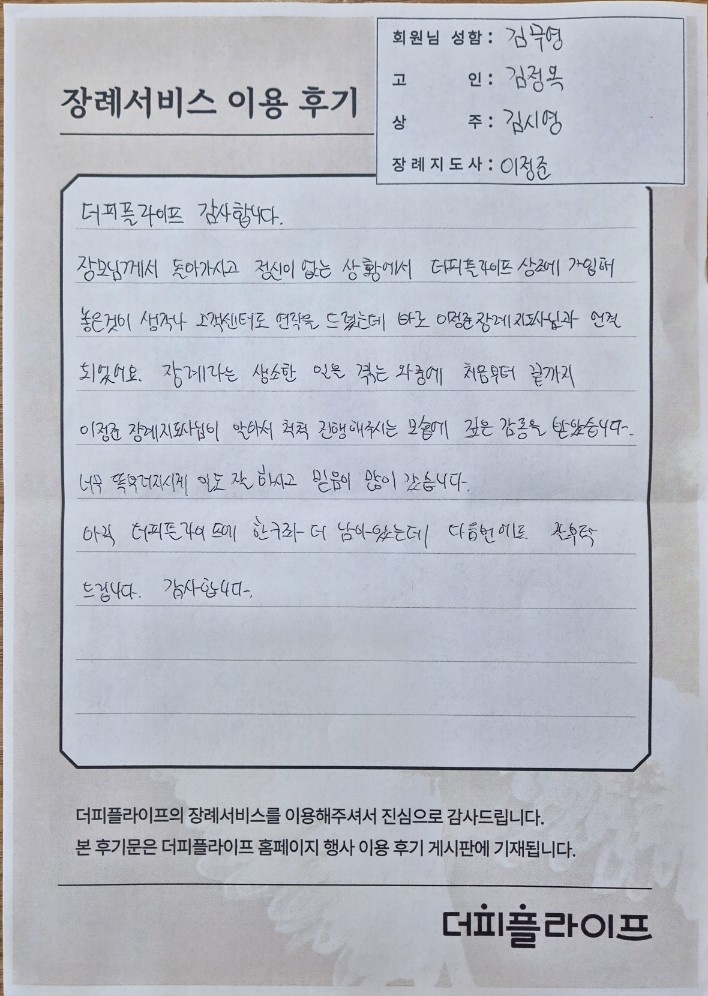 장례서비스 이용 후기
회원님 성함: 김무영
고 인: 김정옥
상 주: 김시영
장례지도사: 이정준
더피플라이프 감사합니다.
장모님께서 돌아가시고 정신이 없는 상황에서 더피플라이프 상조에 가입해
놓은것이 생각나 고객센터로 연락을 드렸는데 바로 이정준 장례지도사님과 연결
되었어요. 장례라는 생소한 일을 겪는 와중에 처음부터 끝까지
이정준 장례지도사님이 알아서 척척 진행해주시는 모습에 깊은 감동을 받았습니다.
너무 똑부러지시게 일도 잘 하시고 믿음이 많이 갔습니다.
아직 더피플라이프에 한구좌 더 남아있는데 다음번에도 잘부탁
드립니다. 감사합니다.
더피플라이프의 장례서비스를 이용해주셔서 진심으로 감사드립니다.
본 후기문은 더피플라이프 홈페이지 행사 이용 후기 게시판에 기재됩니다.
더피플라이프